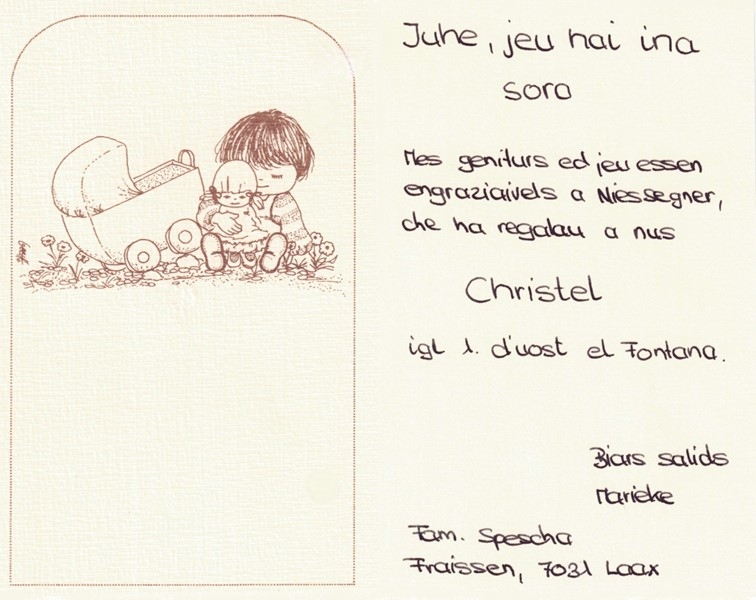 Juhe, jeu hai ina
sora
Mes geniturs ed jeu essen
engraziaivels a Niessegner,
che ha regalau a nus
Christel
igl 1. d'uost el Fontana.
Biars salids
Marieke
Fam. Spescha
Fraissen, 7031 Laax